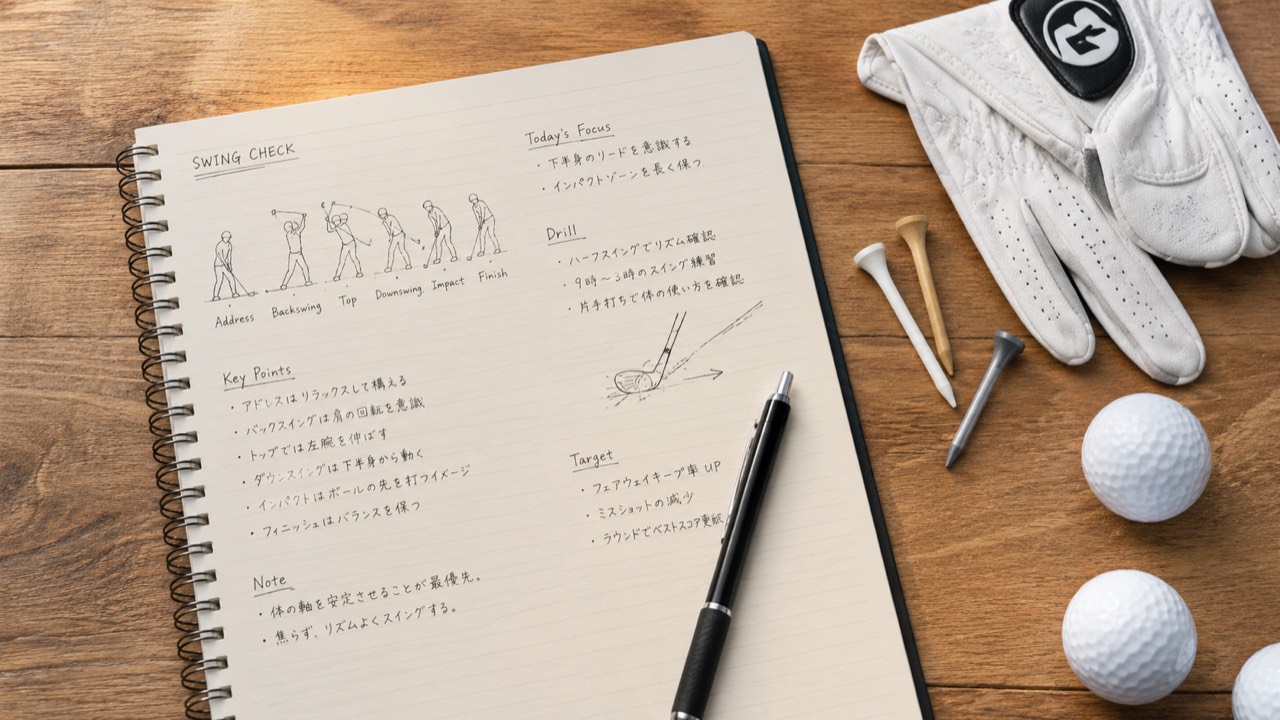 SWING CHECK
Address Backswing Top Downswing Impact Finish
Key Points
・アドレスはリラックスして構える
・バックスイングは肩の回転を意識
・トップでは左腕を伸ばす
・ダウンスイングは下半身から動く
・インパクトはボールの先を打つイメージ
・フィニッシュはバランスを保つ
Note
・体の軸を安定させることが最優先。
・焦らず、リズムよくスイングする。
Today's Focus
・下半身のリードを意識する
・インパクトゾーンを長く保つ
Drill
・ハーフスイングでリズム確認
・9時〜3時のスイング練習
・片手打ちで体の使い方を確認
Target
・フェアウェイキープ率 UP
・ミスショットの減少
・ラウンドでベストスコア更新